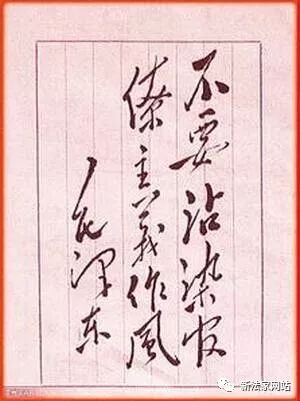 不要沾染官
僚主义作風
毛泽东
一新法家网站